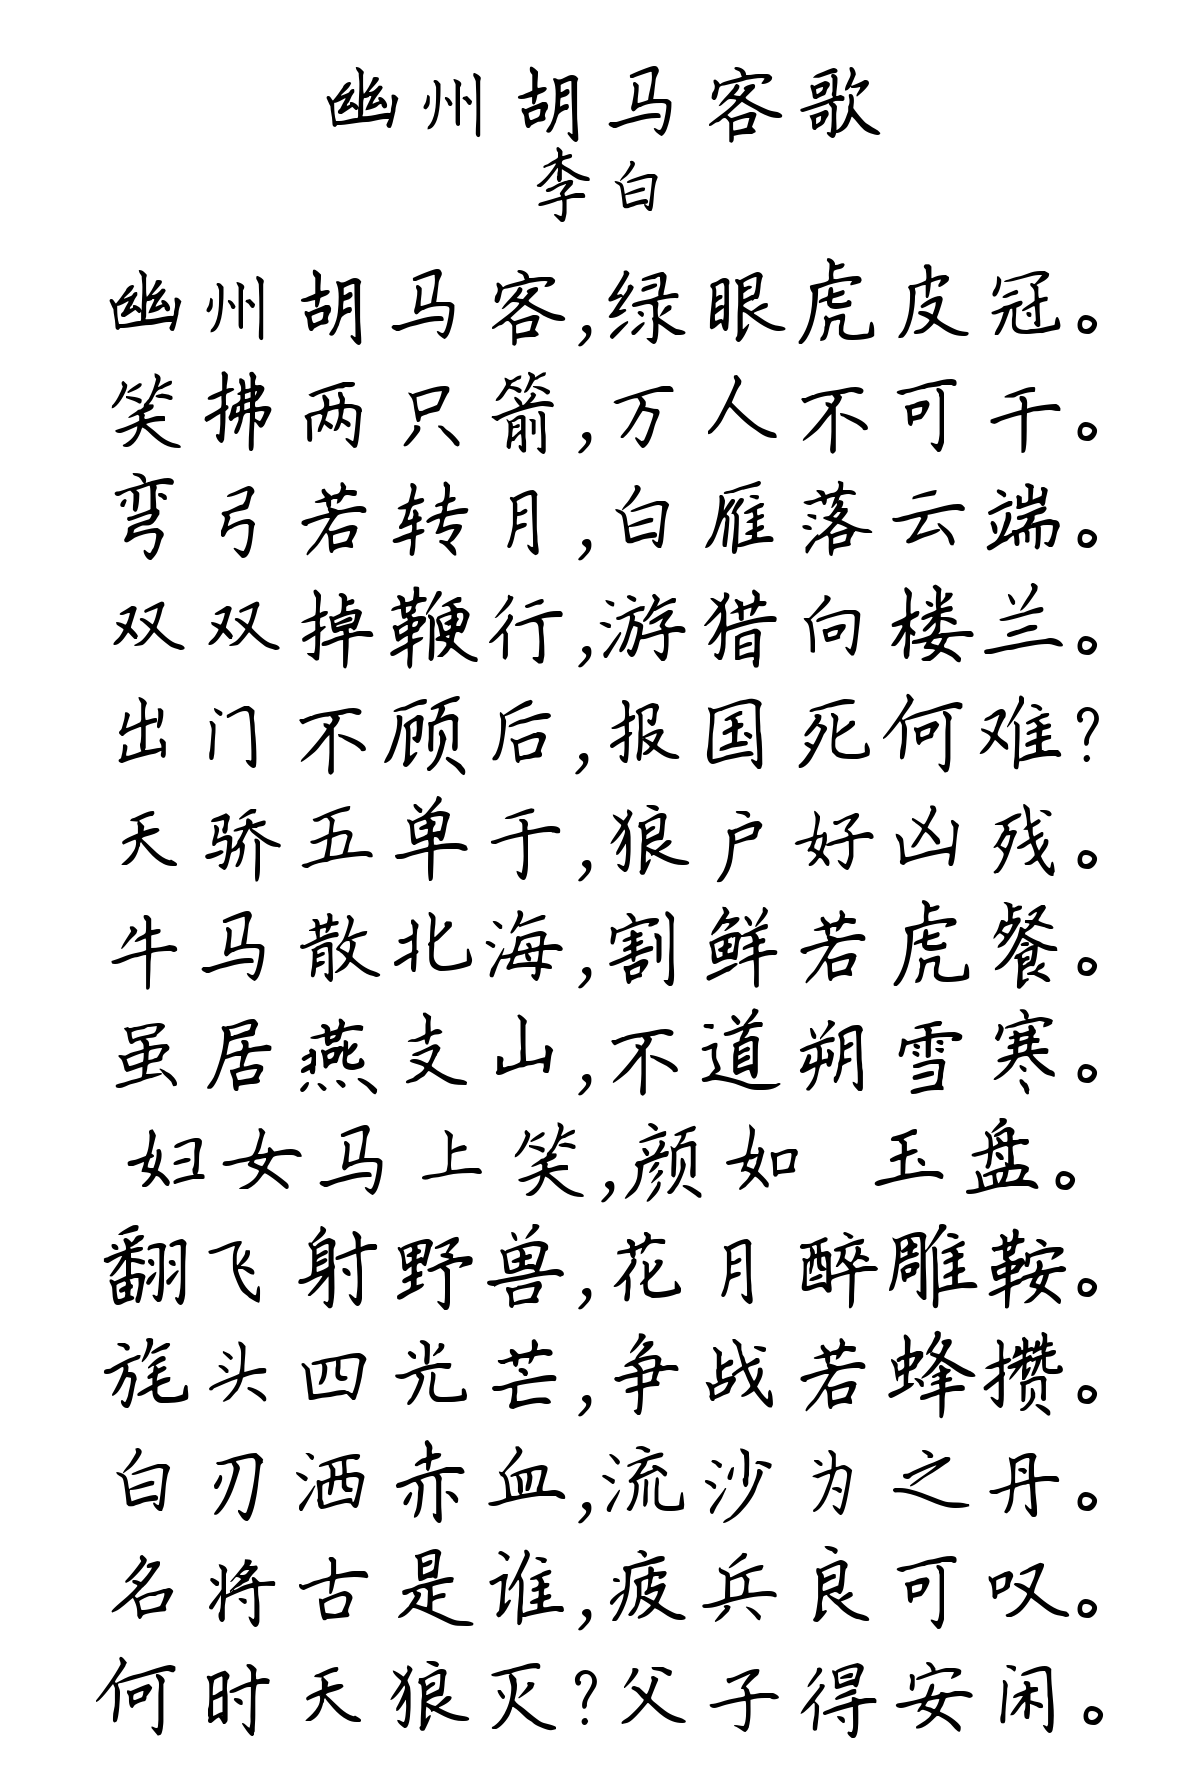 幽州胡马客歌
李白
幽州胡马客,绿眼虎皮冠。
笑拂两只箭,万人不可干。
弯弓若转月,白雁落云端。
双双掉鞭行,游猎向楼兰。
出门不顾后,报国死何难?
天骄五单于,狼户好凶残。
牛马散北海,割鲜若虎餐。
虽居燕支山,不道朔雪寒。
妇女马上笑,颜如 玉盘。
翻飞射野兽,花月醉雕鞍。
旄头四光芒,争战若蜂攒。
白刃洒赤血,流沙为之丹。
名将古是谁,疲兵良可叹。
何时天狼灭?父子得安闲。